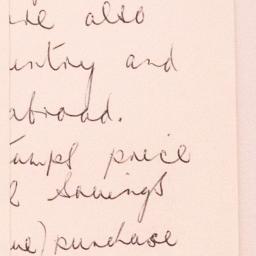 are also
untry and
abroad.
tamps price
2 Savings
ue) purchase